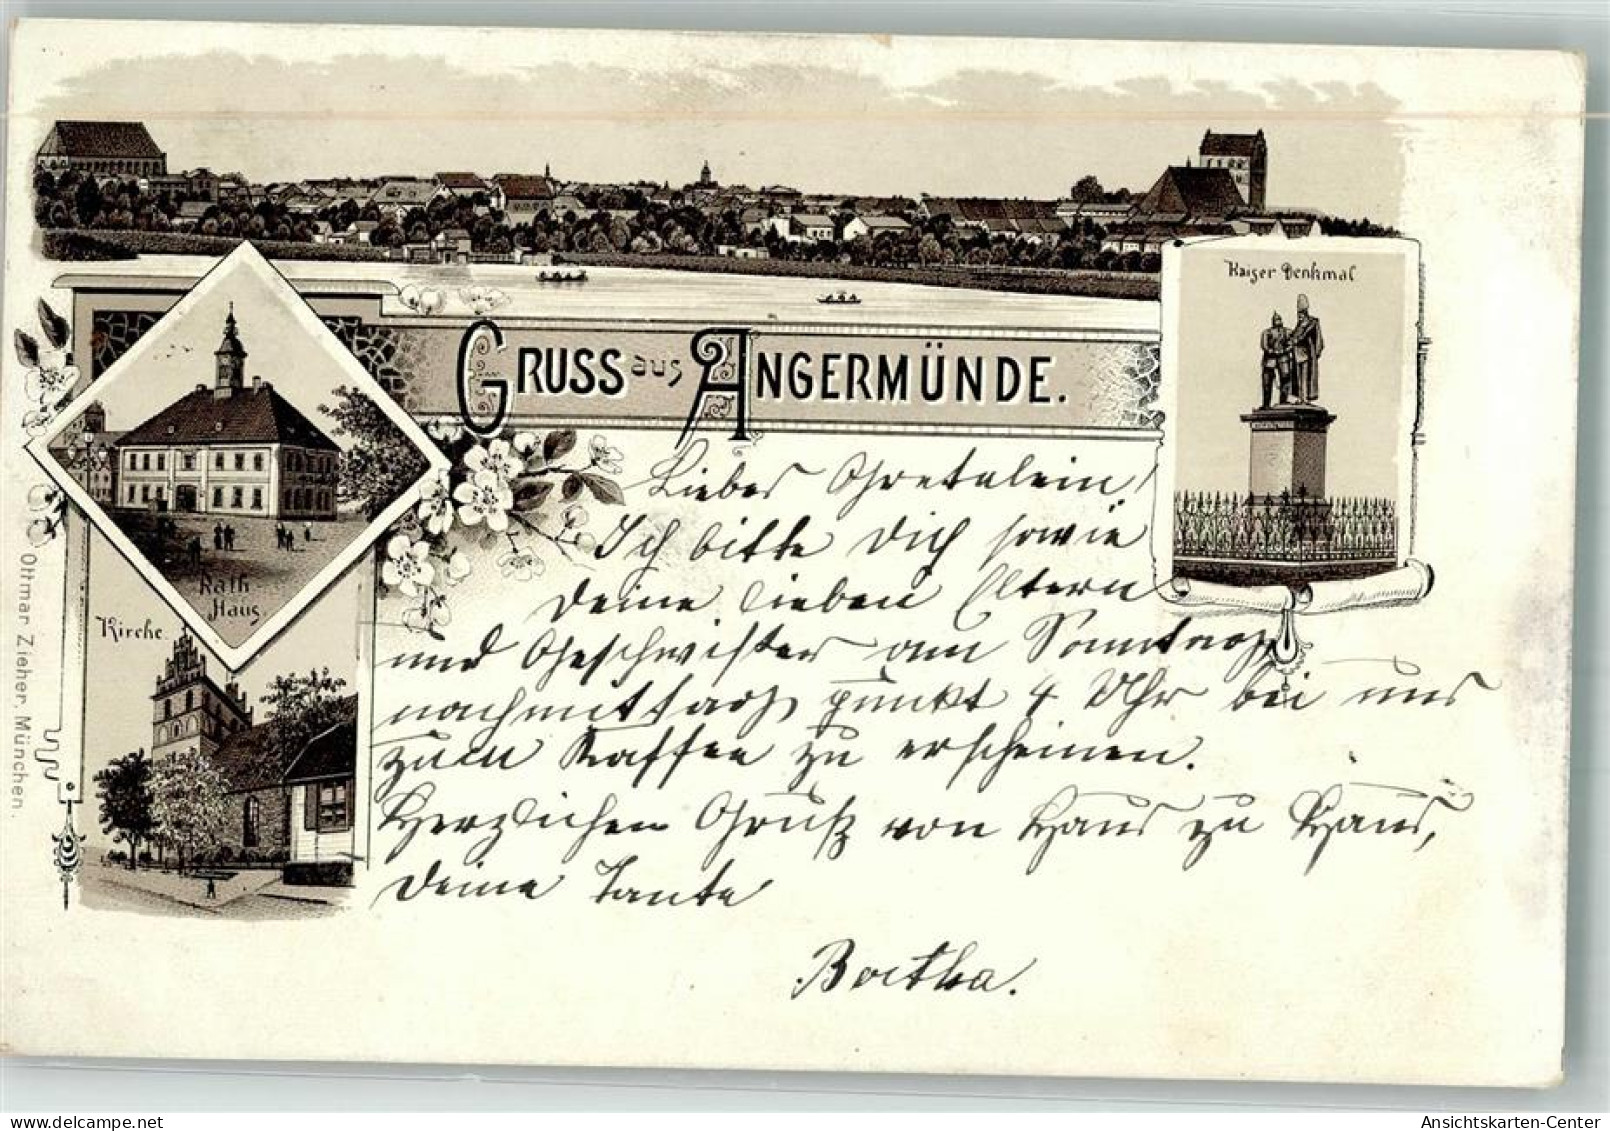 Kaiser Denkmal
GRUSS aus ANGERMÜNDE.
Rath
Haus.
Kirche
Ottmar Zieher, München.
Liebes Gretelein!
Ich bitte Dich sowie
Deine lieben Eltern
und Geschwister am Sonntag
nachmittag punkt 4 Uhr bei uns
zum Kaffee zu erscheinen.
Herzlichen Gruß von Haus zu Haus,
Deine Tante
Bertha.
Ansichtskarten-Center